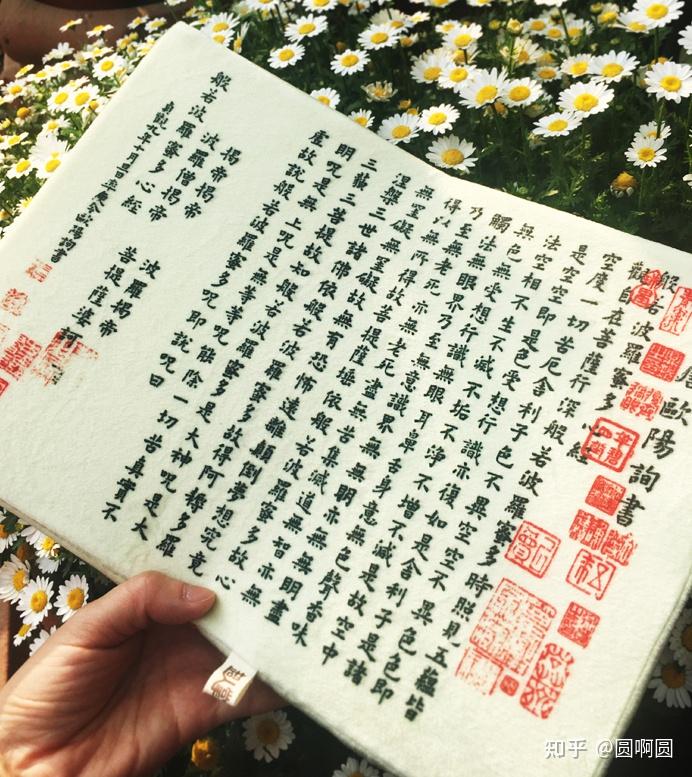 唐歐陽詢書
般若波羅蜜多心經
觀自在菩薩行深般若波羅蜜多時照見五蘊皆
空度一切苦厄舍利子色不異空空不異色色即
是空空即是色受想行識亦復如是舍利子是諸
法空相不生不滅不垢不淨不增不減是故空中
無色無受想行識無眼耳鼻舌身意無色聲香味
觸法無眼界乃至無意識界無無明亦無無明盡
乃至無老死亦無老死盡無苦集滅道無智亦無
得以無所得故菩提薩埵依般若波羅蜜多故心
無罣礙無罣礙故無有恐怖遠離顛倒夢想究竟
涅槃三世諸佛依般若波羅蜜多故得阿耨多羅
三藐三菩提故知般若波羅蜜多是大神呪是大
明呪是無上呪是無等等呪能除一切苦真實不
虛故說般若波羅蜜多呪即說呪曰
揭帝揭帝 波羅揭帝
波羅僧揭帝 菩提薩婆訶
般若波羅蜜多心經
貞觀九年十月旦日率更令歐陽詢書
知乎 @圆啊圆